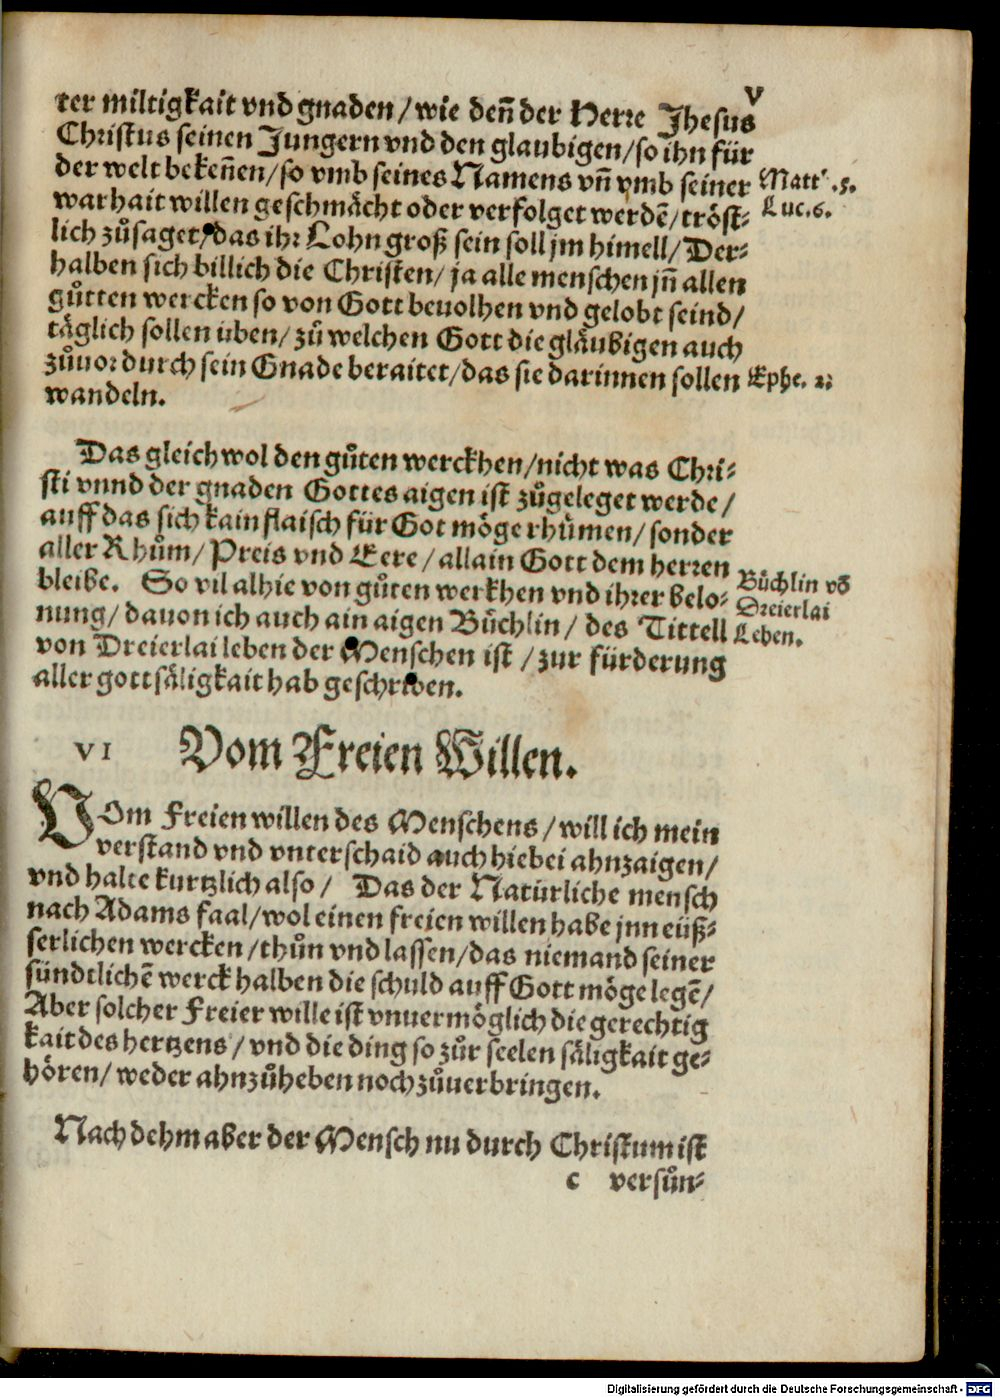 v
ter miltigkait vnd gnaden / wie deñ der Herre Jhesus
Christus seinen Jungern vnd den glaubigen / so ihn für
der welt bekeñen / so vmb seines Namens vñ vmb seiner
Matt. 5.
warhait willen geschmächt oder verfolget werdē / tröst-
Luc. 6.
lich zůsaget / das ihr Lohn groß sein soll jm himell / Der-
halben sich billich die Christen / ja alle menschen jñ allen
gůtten wercken so von Gott beuolhen vnd gelobt seind /
täglich sollen üben / zů welchen Gott die gläubigen auch
zůuor durch sein Gnade beraitet / das sie darinnen sollen
Ephe. 2
wandeln.
Das gleichwol den gůten werckhen / nicht was Chri-
sti vnnd der gnaden Gottes aigen ist zůgeleget werde /
auff das sich kain flaisch für Got möge rhůmen / sonder
aller Rhům / Preis vnd Eere / allain Gott dem herren
bleibe. So vil alhie von gůten werkhen vnd ihrer belo-
Büchlin võ
nung / dauon ich auch ain aigen Büchlin / des Tittell
Dreierlai
von Dreierlai leben der Menschen ist / zur fürderung
Leben.
aller gottsäligkait hab geschriben.
VI Vom Freien Willen.
VOm Freien willen des Menschens / will ich mein
verstand vnd vnterschaid auch hiebei ahnzaigen /
vnd halte kurtzlich also / Das der Natürliche mensch
nach Adams faal / wol einen freien willen habe jnn eüß-
serlichen wercken / thůn vnd lassen / das niemand seiner
sündtlichē werck halben die schuld auff Gott möge legē /
Aber solcher Freier wille ist vnuermöglich die gerechtig
kait des hertzens / vnd die ding so zůr seelen säligkait ge-
hören / weder ahnzůheben noch zůuerbringen.
Nach dehm aber der Mensch nu durch Christum ist
c versůn-
Digitalisierung gefördert durch die Deutsche Forschungsgemeinschaft - DFG